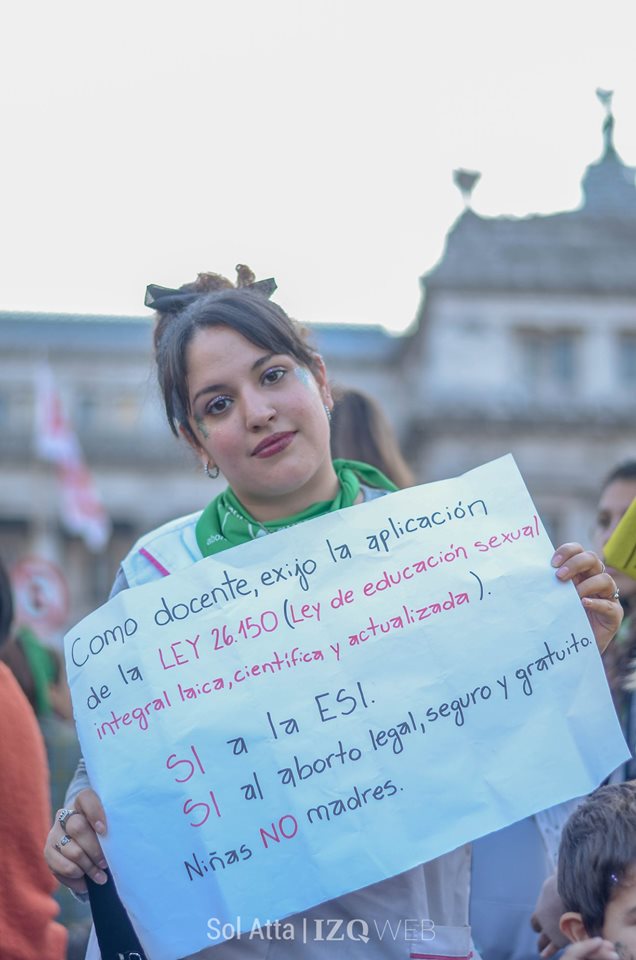 Como docente, exijo la aplicación
de la LEY 26.150 (Ley de educación sexual
integral laica, científica y actualizada).
SI a la ESI.
SI al aborto legal, seguro y gratuito.
Niñas NO madres.
Sol Atta | IZQ WEB